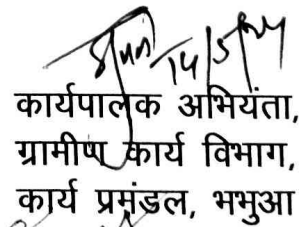 14/5/24
कार्यपालक अभियंता,
ग्रामीण कार्य विभाग,
कार्य प्रमंडल, भभुआ